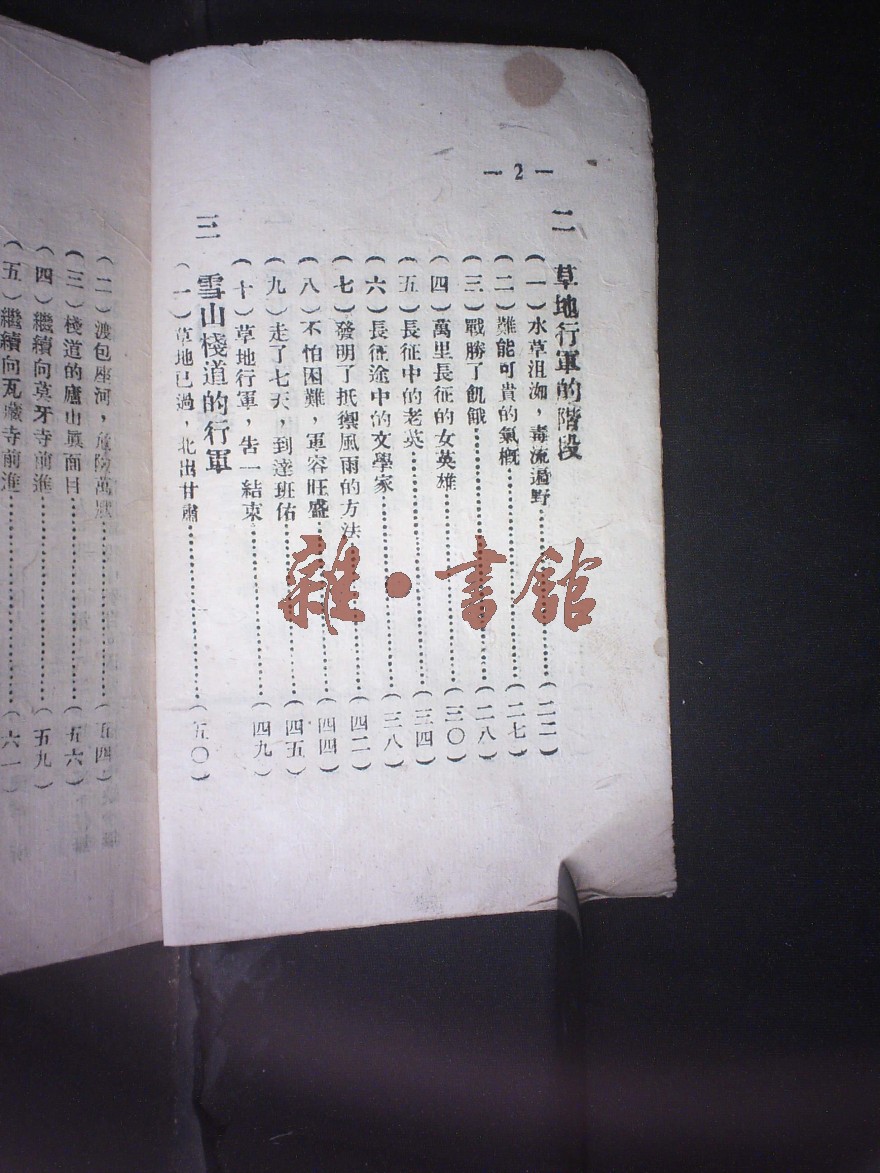 — 2 —
二 草地行軍的階段
(一)水草沮洳,毒流遍野…………(二二)
(二)難能可貴的氣概…………(二七)
(三)戰勝了飢餓…………(二八)
(四)萬里長征的女英雄…………(三〇)
(五)長征中的老英…………(三四)
(六)長征途中的文學家…………(三八)
(七)發明了抵禦風雨的方法…………(四二)
(八)不怕困難,軍容旺盛…………(四四)
(九)走了七天,到達班佑…………(四五)
(十)草地行軍,告一結束…………(四九)
三 雪山棧道的行軍
(一)草地已過,北出甘肅…………(五〇)
(二)渡包座河,危險萬狀…………(五四)
(三)棧道的廬山眞面目…………(五六)
(四)繼續向莫牙寺前進…………(五九)
(五)繼續向瓦藏寺前進…………(六一)
雜·書館